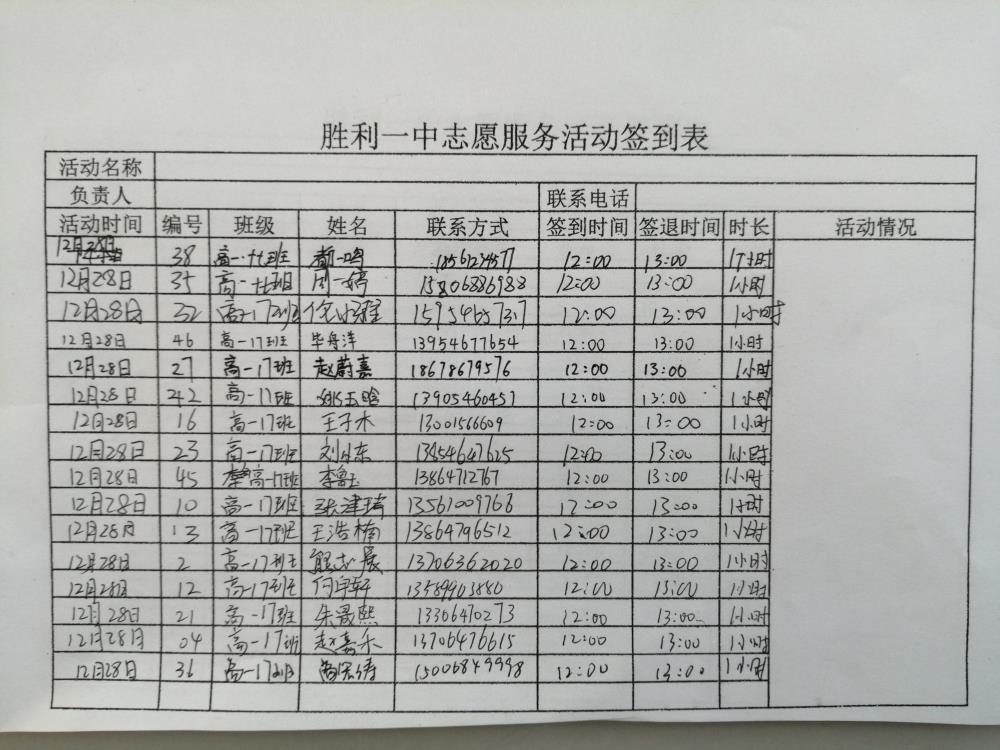 胜利一中志愿服务活动签到表
活动名称
负责人 联系电话
活动时间 编号 班级 姓名 联系方式 签到时间 签退时间 时长 活动情况
12月28日 38 高一十七班 一鸣 12:00 13:00 1小时
12月28日 35 高一十七班 周一婷 15806886988 12:00 13:00 1小时
12月28日 32 高一17班 15954657317 12:00 13:00 1小时
12月28日 46 高一17班 毕舟洋 13954677654 12:00 13:00 1小时
12月28日 27 高一17班 赵蔚嘉 18678679576 12:00 13:00 1小时
12月28日 42 高一17班 姚玉晗 13905460457 12:00 13:00 1小时
12月28日 16 高一17班 王子木 13001566609 12:00 13:00 1小时
12月28日 23 高一17班 刘小东 13954647625 12:00 13:00 1小时
12月28日 45 高一17班 李鲁玉 13864712767 12:00 13:00 1小时
12月28日 10 高一17班 张津琦 13561009766 12:00 13:00 1小时
12月28日 13 高一17班 王浩楠 13864796512 12:00 13:00 1小时
12月28日 2 高一17班 熊志晨 13706362020 12:00 13:00 1小时
12月28日 12 高一17班 何宇轩 13589903880 12:00 13:00 1小时
12月28日 21 高一17班 朱晟熙 13306470273 12:00 13:00 1小时
12月28日 04 高一17班 赵嘉禾 13706476615 12:00 13:00 1小时
12月28日 36 高一17班 15006849998 12:00 13:00 1小时